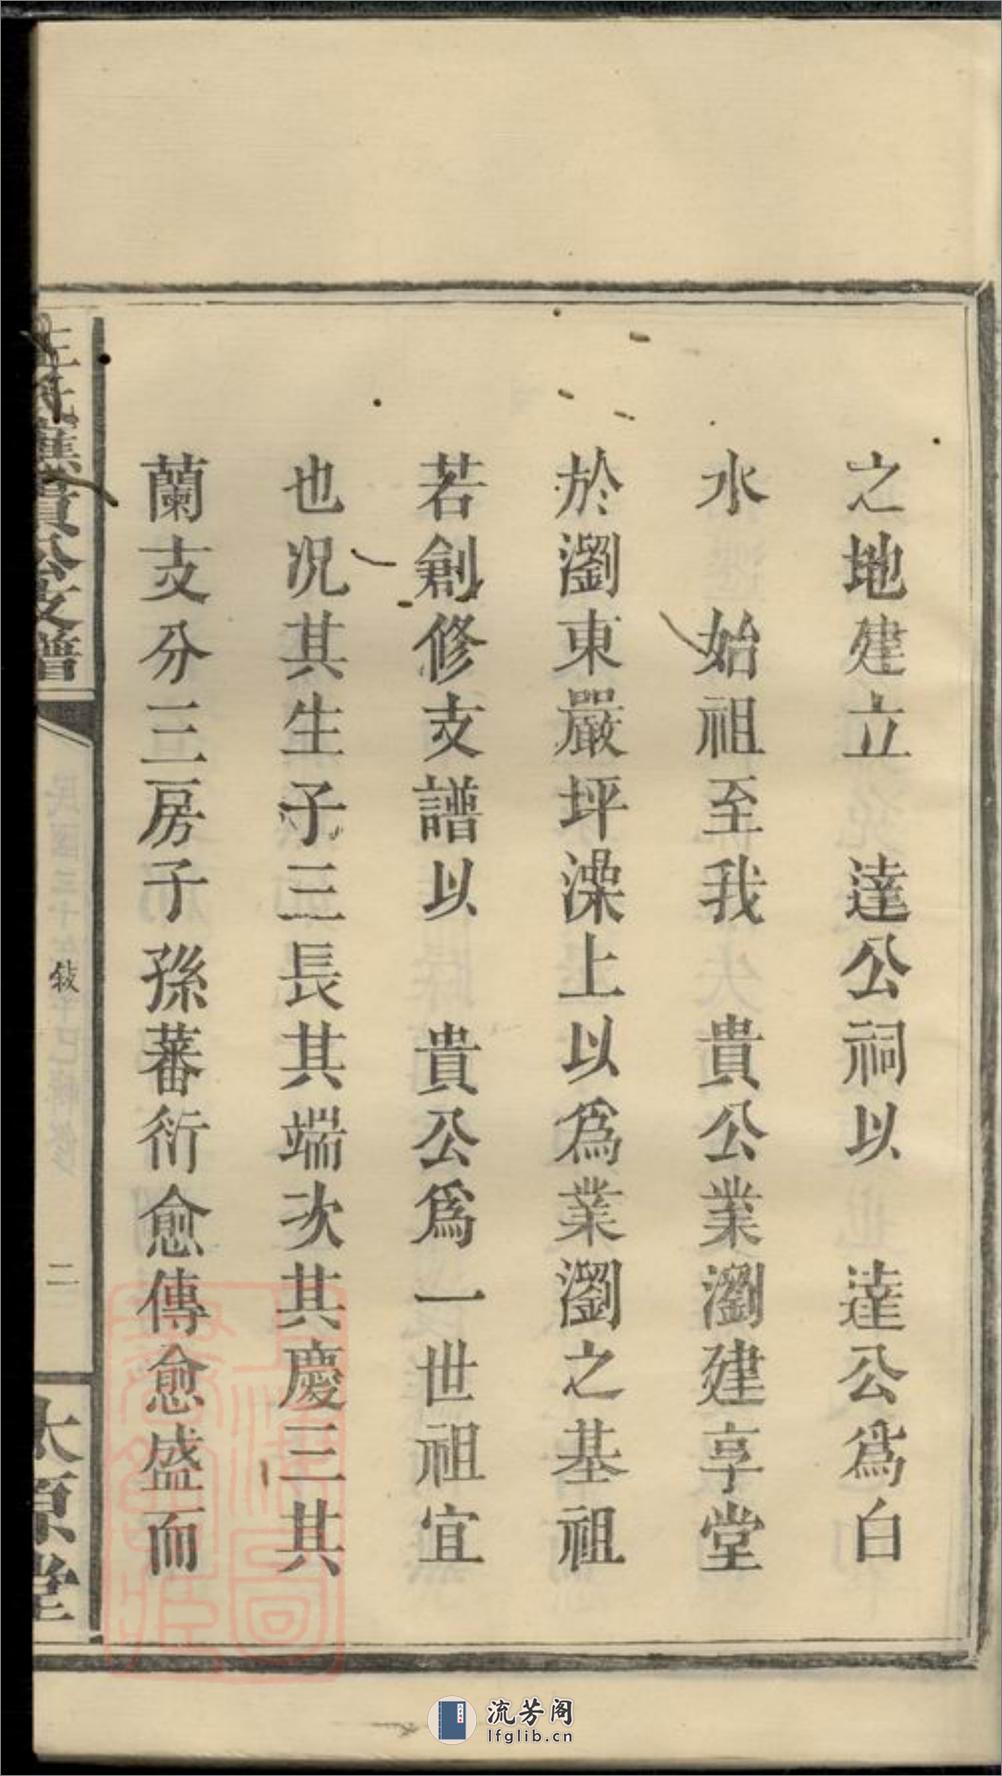 之地建立　達公祠以　達公爲白
水　始祖至我　貴公業瀏建享堂
於瀏東嚴坪澡上以爲業瀏之基祖
若創修支譜以　貴公爲一世祖宜
也况其生子三長其端次其慶三其
蘭支分三房子孫蕃衍愈傳愈盛而
王氏 貴公支譜
敍
二
太原堂
流芳阁
lfglib.cn